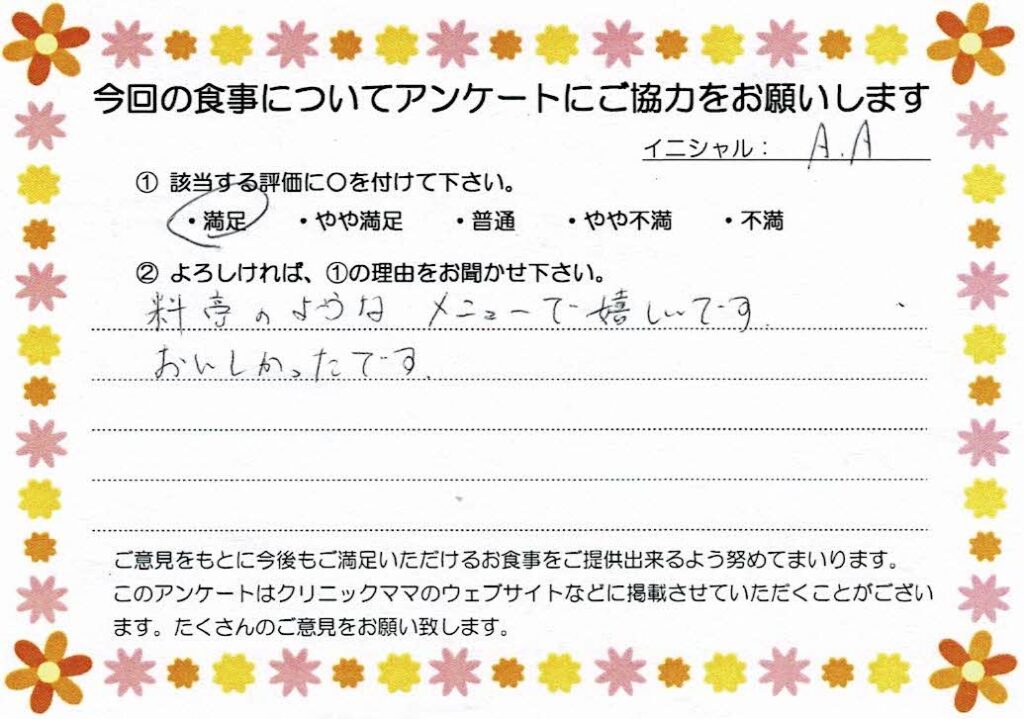 今回の食事についてアンケートにご協力をお願いします
イニシャル： A.A
① 該当する評価に〇を付けて下さい。
・満足 ・やや満足 ・普通 ・やや不満 ・不満
② よろしければ、①の理由をお聞かせ下さい。
料亭のような メニューで嬉しいです.
おいしかったです.
ご意見をもとに今後もご満足いただけるお食事をご提供出来るよう努めてまいります。
このアンケートはクリニックママのウェブサイトなどに掲載させていただくことがござい
ます。たくさんのご意見をお願い致します。